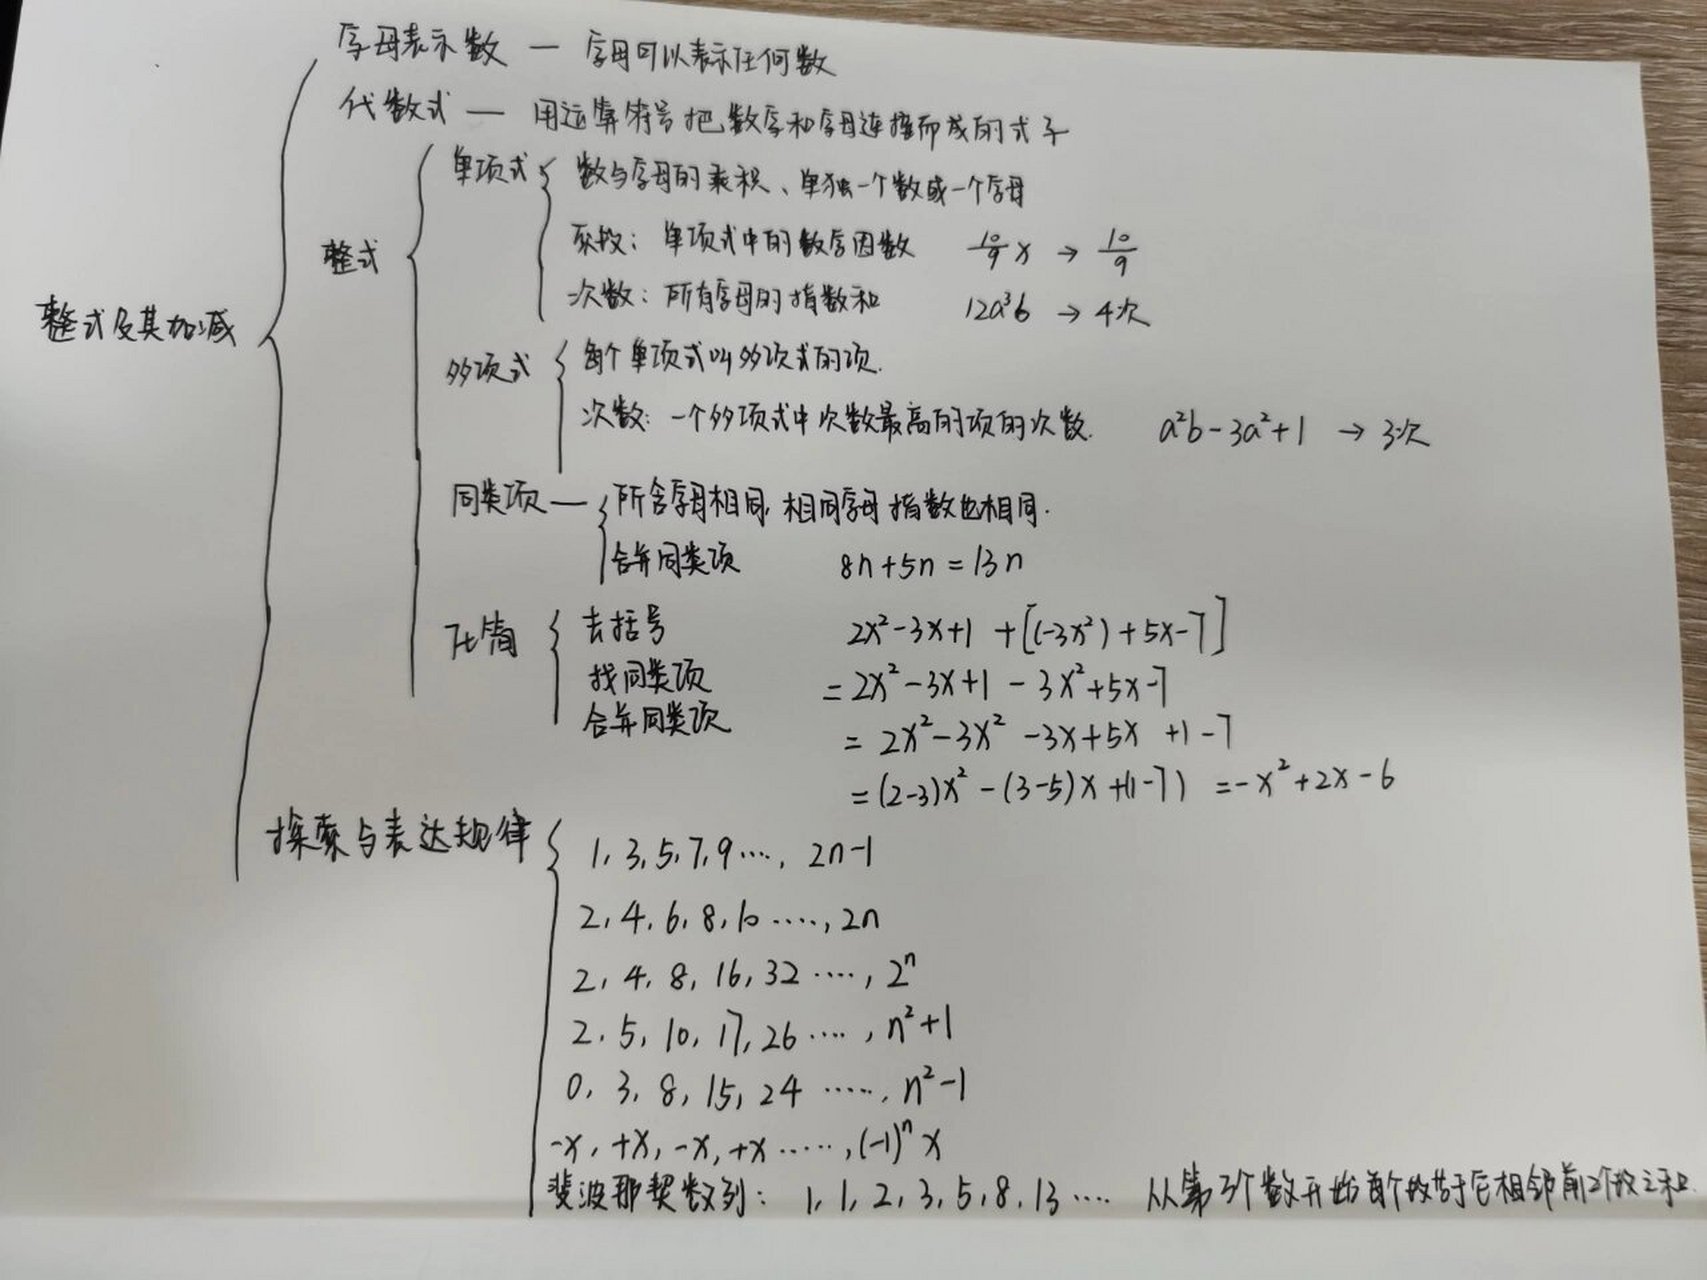 字母表示数 — 字母可以表示任何数
代数式 — 用运算符号把数字和字母连接而成的式子
整式及其加减
整式
单项式
数与字母的乘积、单独一个数或一个字母
系数：单项式中的数字因数 10/9 x → 10/9
次数：所有字母的指数和 12a³b → 4次
多项式
每个单项式叫多项式的项.
次数：一个多项式中次数最高的项的次数. a²b-3a²+1 → 3次
同类项 — 所含字母相同, 相同字母指数也相同.
合并同类项 8n+5n=13n
化简
去括号 2x²-3x+1 +[(-3x²)+5x-7]
找同类项 =2x²-3x+1-3x²+5x-7
合并同类项 =2x²-3x²-3x+5x+1-7
=(2-3)x²-(3-5)x+(1-7) =-x²+2x-6
探索与表达规律
1, 3, 5, 7, 9 ····, 2n-1
2, 4, 6, 8, 10 ·····, 2n
2, 4, 8, 16, 32 ····, 2ⁿ
2, 5, 10, 17, 26 ····, n²+1
0, 3, 8, 15, 24 ·····, n²-1
-x, +x, -x, +x ·····, (-1)ⁿx
斐波那契数列： 1, 1, 2, 3, 5, 8, 13 ···· 从第3个数开始每个数等于它相邻前2个数之和